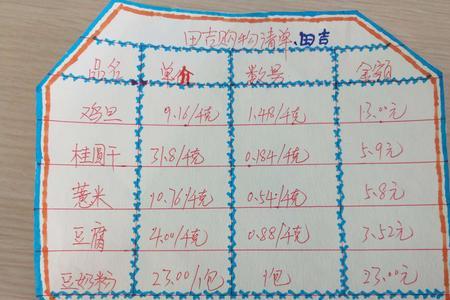 田吉购物清单、田吉
品名 单价 数量 金额
鸡旦 9.16/千克 1.48/千克 13.00元
桂圆干 31.8/千克 0.184/千克 5.9元
薏米 10.76/千克 0.54/千克 5.8元
豆腐 4.00/千克 0.88/千克 3.52元
豆奶粉 23.00/1包 1包 23.00元